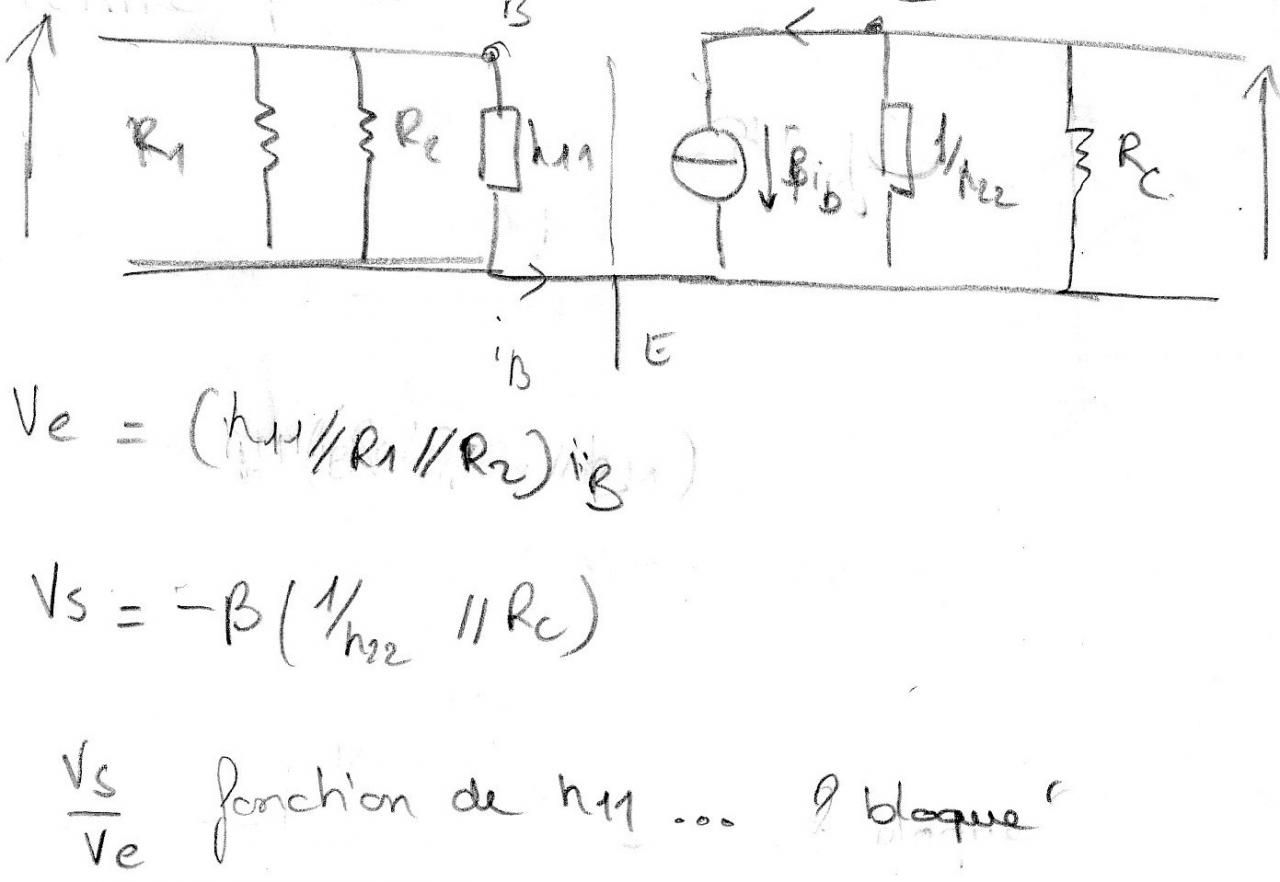 B
R1 R2 h11 βib 1/h22 RC
iB E
Ve = (h11//R1//R2) iB
Vs = -β(1/h22 // Rc)
Vs/Ve fonction de h11 ... ? bloqué